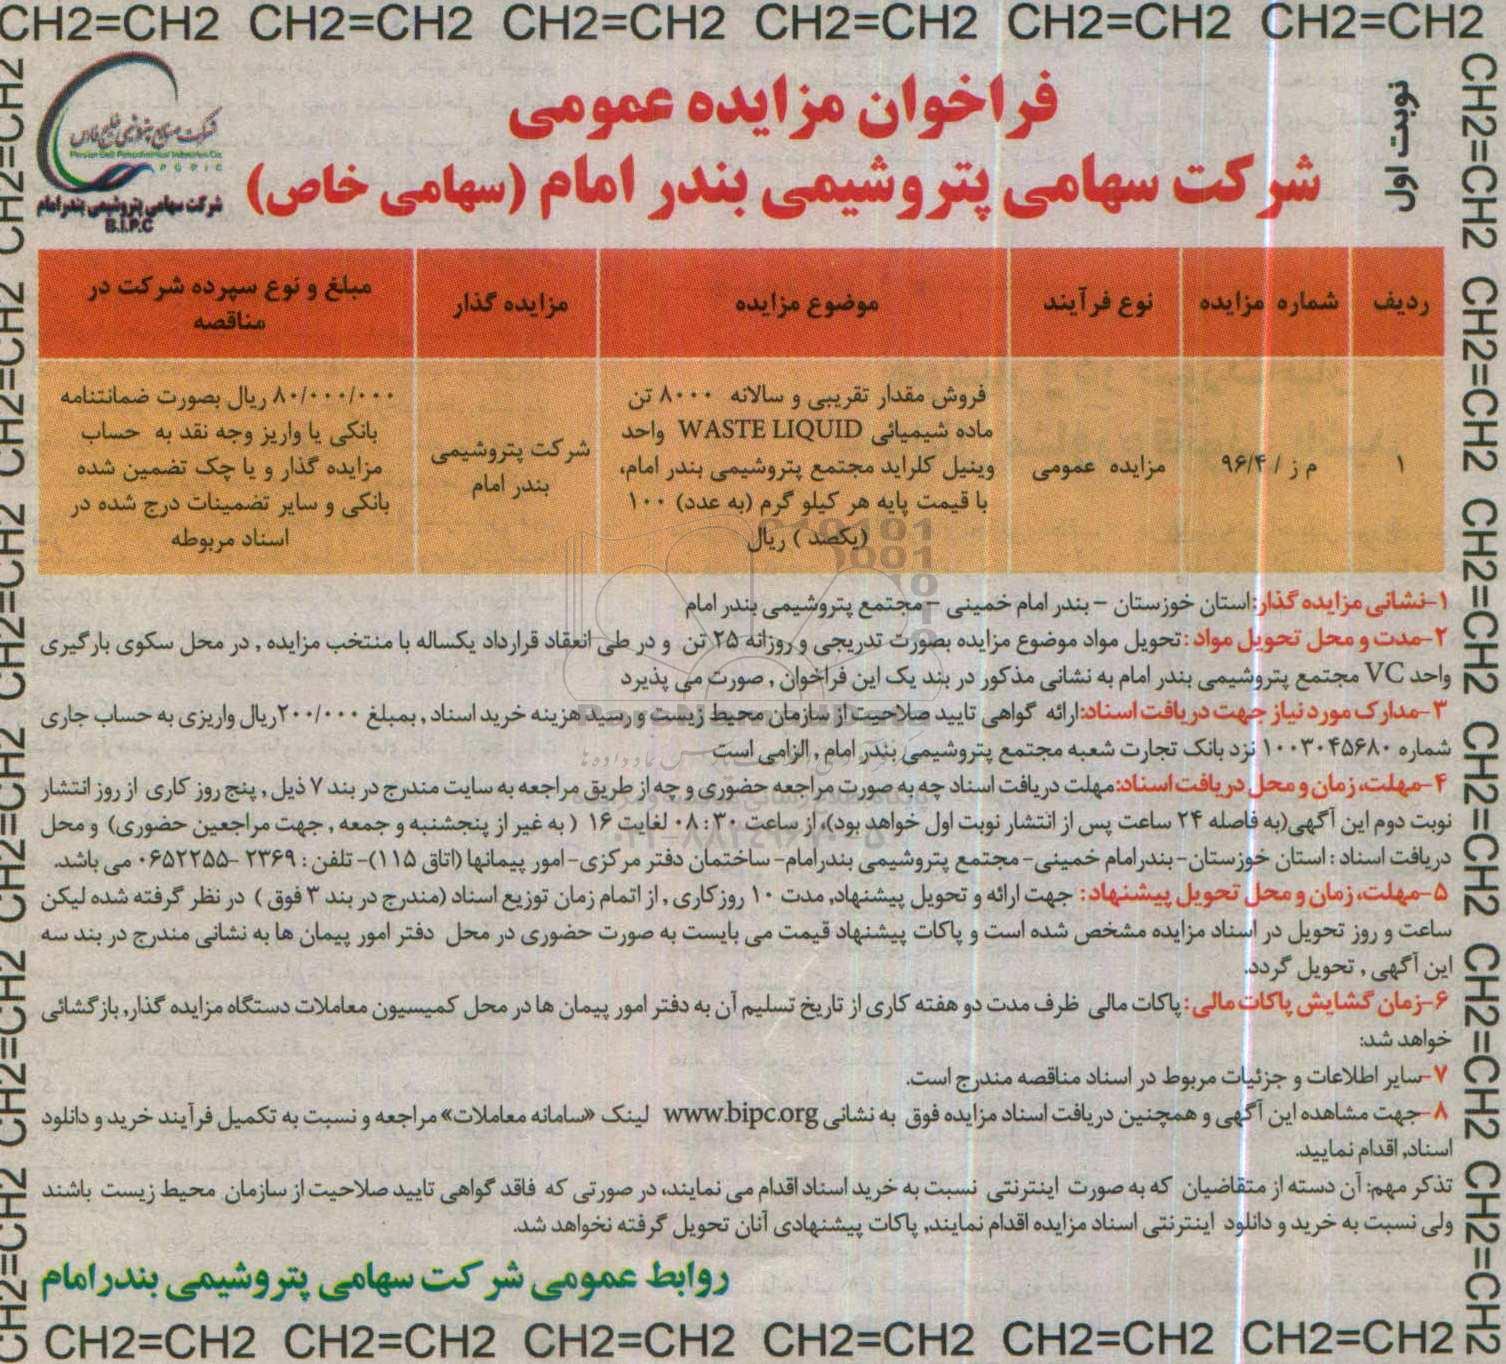 CH2=CH2 CH2=CH2 CH2=CH2 CH2=CH2 CH2=CH2 CH2=CH2
نوبت اول
فراخوان مزایده عمومی
شرکت سهامی پتروشیمی بندر امام (سهامی خاص)
شرکت صنایع پتروشیمی خلیج فارس
Persian Gulf Petrochemical Industries Co.
PGPIC
شرکت سهامی پتروشیمی بندرامام
B.I.P.C
ردیف	شماره مزایده	نوع فرآیند	موضوع مزایده	مزایده گذار	مبلغ و نوع سپرده شرکت در مناقصه
۱	م ز / ۹۶/۴	مزایده عمومی
فروش مقدار تقریبی و سالانه ۸۰۰۰ تن
ماده شیمیائی WASTE LIQUID واحد
وینیل کلراید مجتمع پتروشیمی بندر امام،
با قیمت پایه هر کیلو گرم (به عدد) ۱۰۰
(یکصد) ریال
شرکت پتروشیمی
بندر امام
۸۰/۰۰۰/۰۰۰ ریال بصورت ضمانتنامه
بانکی یا واریز وجه نقد به حساب
مزایده گذار و یا چک تضمین شده
بانکی و سایر تضمینات درج شده در
اسناد مربوطه
۱-نشانی مزایده گذار:استان خوزستان – بندر امام خمینی – مجتمع پتروشیمی بندر امام
۲-مدت و محل تحویل مواد :تحویل مواد موضوع مزایده بصورت تدریجی و روزانه ۲۵ تن و در طی انعقاد قرارداد یکساله با منتخب مزایده , در محل سکوی بارگیری
واحد VC مجتمع پتروشیمی بندر امام به نشانی مذکور در بند یک این فراخوان , صورت می پذیرد
۳-مدارک مورد نیاز جهت دریافت اسناد:ارائه گواهی تایید صلاحیت از سازمان محیط زیست و رسید هزینه خرید اسناد , بمبلغ ۲۰۰/۰۰۰ریال واریزی به حساب جاری
شماره ۱۰۰۳۰۴۵۶۸۰ نزد بانک تجارت شعبه مجتمع پتروشیمی بندر امام , الزامی است
۴-مهلت، زمان و محل دریافت اسناد:مهلت دریافت اسناد چه به صورت مراجعه حضوری و چه از طریق مراجعه به سایت مندرج در بند ۷ ذیل , پنج روز کاری از روز انتشار
نوبت دوم این آگهی(به فاصله ۲۴ ساعت پس از انتشار نوبت اول خواهد بود)، از ساعت ۰۸:۳۰ لغایت ۱۶ ( به غیر از پنجشنبه و جمعه , جهت مراجعین حضوری) و محل
دریافت اسناد : استان خوزستان- بندرامام خمینی- مجتمع پتروشیمی بندرامام- ساختمان دفتر مرکزی- امور پیمانها (اتاق ۱۱۵)- تلفن : ۲۳۶۹ -۰۶۵۲۲۵۵ می باشد.
۵-مهلت، زمان و محل تحویل پیشنهاد : جهت ارائه و تحویل پیشنهاد, مدت ۱۰ روزکاری , از اتمام زمان توزیع اسناد (مندرج در بند ۳ فوق ) در نظر گرفته شده لیکن
ساعت و روز تحویل در اسناد مزایده مشخص شده است و پاکات پیشنهاد قیمت می بایست به صورت حضوری در محل دفتر امور پیمان ها به نشانی مندرج در بند سه
این آگهی , تحویل گردد.
۶-زمان گشایش پاکات مالی : پاکات مالی ظرف مدت دو هفته کاری از تاریخ تسلیم آن به دفتر امور پیمان ها در محل کمیسیون معاملات دستگاه مزایده گذار, بازگشائی
خواهد شد:
۷-سایر اطلاعات و جزئیات مربوط در اسناد مناقصه مندرج است.
۸-جهت مشاهده این آگهی و همچنین دریافت اسناد مزایده فوق به نشانی www.bipc.org لینک «سامانه معاملات» مراجعه و نسبت به تکمیل فرآیند خرید و دانلود
اسناد, اقدام نمایید.
تذکر مهم: آن دسته از متقاضیان که به صورت اینترنتی نسبت به خرید اسناد اقدام می نمایند، در صورتی که فاقد گواهی تایید صلاحیت از سازمان محیط زیست باشند
ولی نسبت به خرید و دانلود اینترنتی اسناد مزایده اقدام نمایند, پاکات پیشنهادی آنان تحویل گرفته نخواهد شد.
روابط عمومی شرکت سهامی پتروشیمی بندرامام
CH2=CH2 CH2=CH2 CH2=CH2 CH2=CH2 CH2=CH2 CH2=CH2
CH2=CH2 CH2=CH2 CH2=CH2 CH2=CH2 CH2=CH2 CH2=CH2
CH2=CH2 CH2=CH2 CH2=CH2 CH2=CH2 CH2=CH2 CH2=CH2